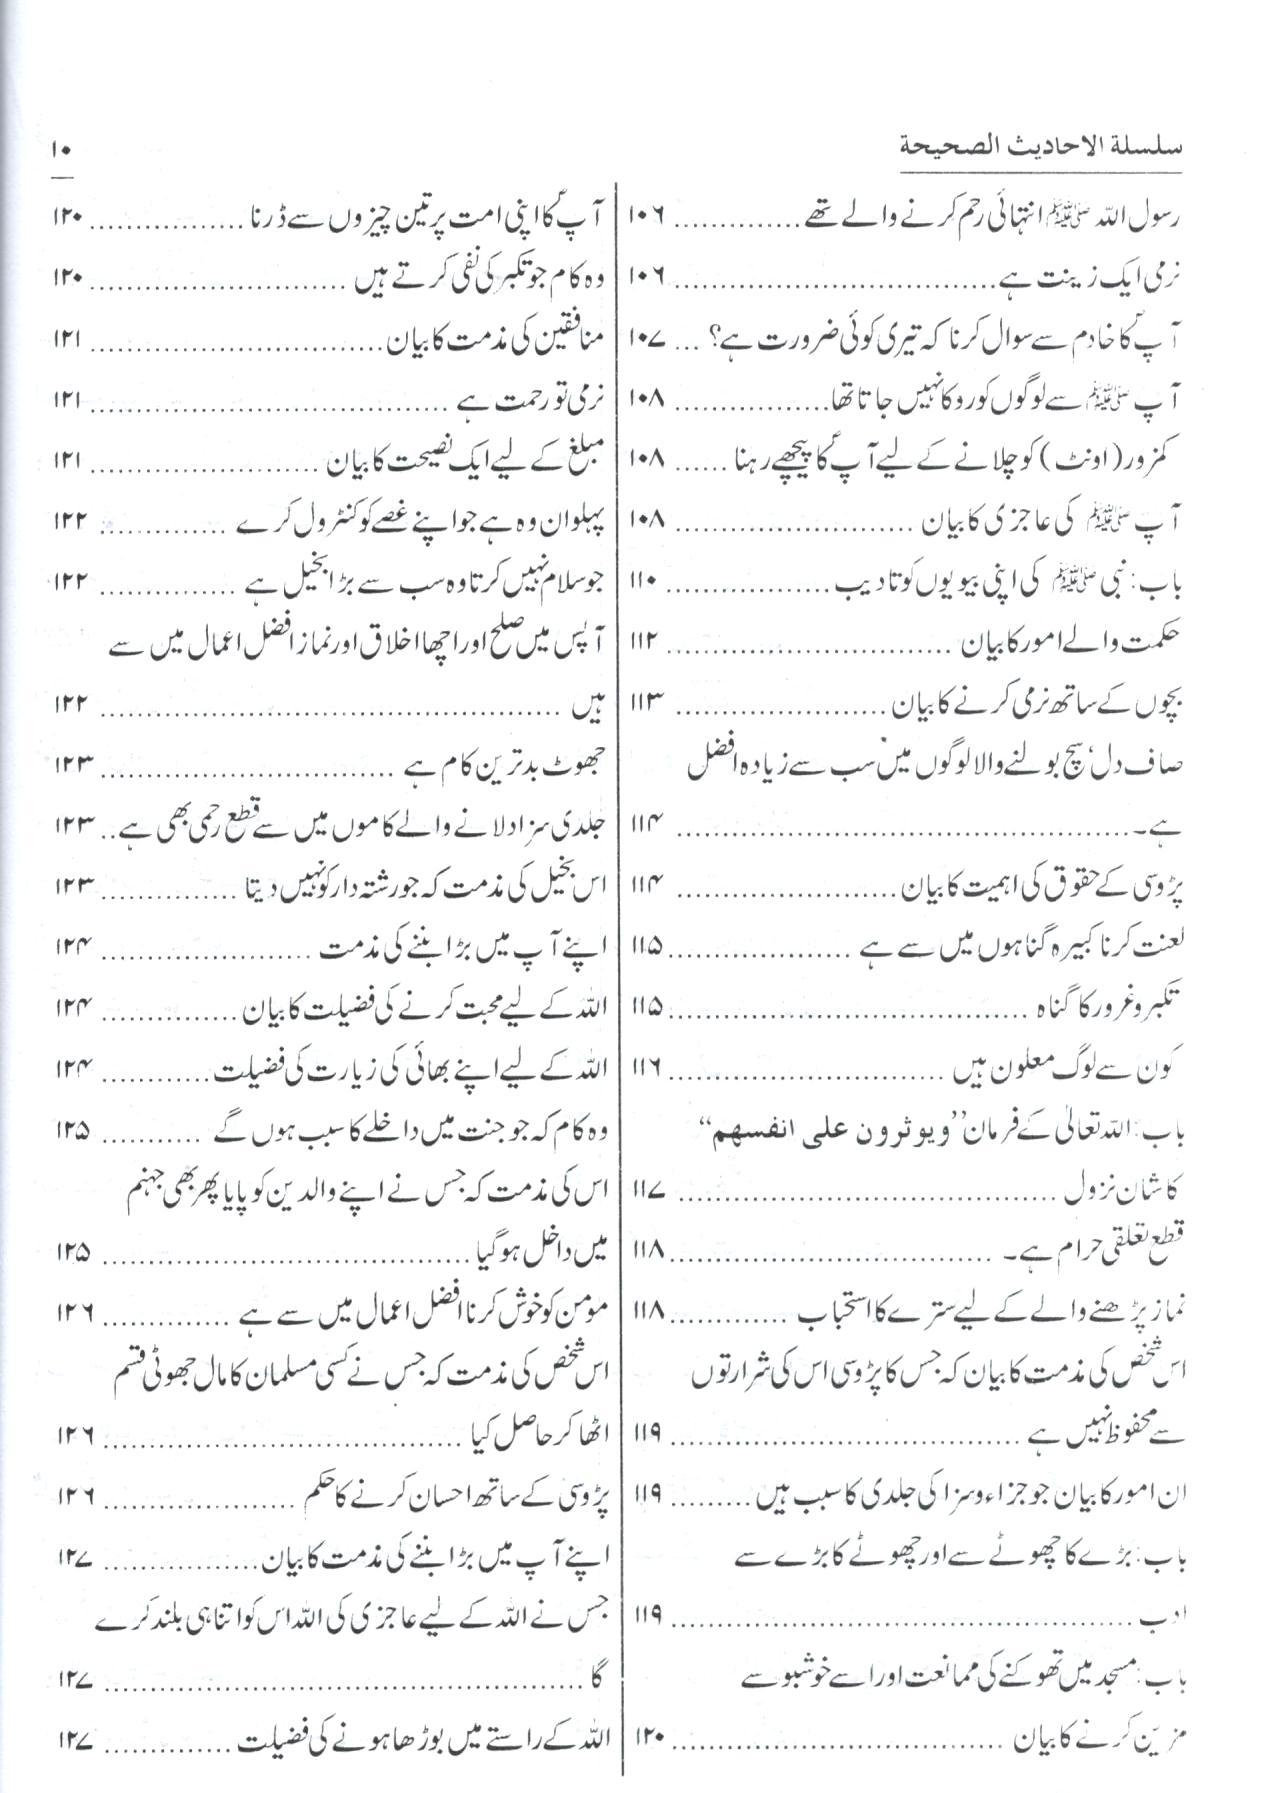 سلسلة الاحاديث الصحيحة
۱۰
رسول اللہ ﷺ انتہائی رحم کرنے والے تھے .............. ۱۰۶
نرمی ایک زینت ہے .............. ۱۰۶
آپؐ کا خادم سے سوال کرنا کہ تیری کوئی ضرورت ہے؟ ... ۱۰۷
آپ ﷺ سے لوگوں کو روکا نہیں جاتا تھا .............. ۱۰۸
کمزور (اونٹ) کو چلانے کے لیے آپؐ کا پیچھے رہنا ...... ۱۰۸
آپ ﷺ کی عاجزی کا بیان .............. ۱۰۸
باب: نبی ﷺ کی اپنی بیویوں کو تادیب .............. ۱۱۰
حکمت والے امور کا بیان .............. ۱۱۲
بچوں کے ساتھ نرمی کرنے کا بیان .............. ۱۱۳
صاف دل‘ سچ بولنے والا لوگوں میں سب سے زیادہ افضل
ہے۔ .............. ۱۱۴
پڑوسی کے حقوق کی اہمیت کا بیان .............. ۱۱۴
لعنت کرنا کبیرہ گناہوں میں سے ہے .............. ۱۱۵
تکبر و غرور کا گناہ .............. ۱۱۵
کون سے لوگ معلون ہیں .............. ۱۱۶
باب: اللہ تعالیٰ کے فرمان ’’ويوثرون على انفسهم‘‘
کا شان نزول .............. ۱۱۷
قطع تعلقی حرام ہے۔ .............. ۱۱۸
نماز پڑھنے والے کے لیے سترے کا استحباب .............. ۱۱۸
اس شخص کی مذمت کا بیان کہ جس کا پڑوسی اس کی شرارتوں
سے محفوظ نہیں ہے .............. ۱۱۹
ان امور کا بیان جو جزاء و سزا کی جلدی کا سبب ہیں ......... ۱۱۹
باب: بڑے کا چھوٹے سے اور چھوٹے کا بڑے سے
ادب .............. ۱۱۹
باب: مسجد میں تھوکنے کی ممانعت اور اسے خوشبو سے
مزین کرنے کا بیان .............. ۱۲۰
آپؐ کا اپنی امت پر تین چیزوں سے ڈرنا .............. ۱۲۰
وہ کام جو تکبر کی نفی کرتے ہیں .............. ۱۲۰
منافقین کی مذمت کا بیان .............. ۱۲۱
نرمی تو رحمت ہے .............. ۱۲۱
مبلغ کے لیے ایک نصیحت کا بیان .............. ۱۲۱
پہلوان وہ ہے جو اپنے غصے کو کنٹرول کرے .............. ۱۲۲
جو سلام نہیں کرتا وہ سب سے بڑا بخیل ہے .............. ۱۲۲
آپس میں صلح اور اچھا اخلاق اور نماز افضل اعمال میں سے
ہیں .............. ۱۲۲
جھوٹ بدترین کام ہے .............. ۱۲۳
جلدی سزا دلانے والے کاموں میں سے قطع رحمی بھی ہے .. ۱۲۳
اس بخیل کی مذمت کہ جو رشتہ دار کو نہیں دیتا .............. ۱۲۳
اپنے آپ میں بڑا بننے کی مذمت .............. ۱۲۴
اللہ کے لیے محبت کرنے کی فضیلت کا بیان .............. ۱۲۴
اللہ کے لیے اپنے بھائی کی زیارت کی فضیلت .............. ۱۲۴
وہ کام کہ جو جنت میں داخلے کا سبب ہوں گے .............. ۱۲۵
اس کی مذمت کہ جس نے اپنے والدین کو پایا پھر بھی جہنم
میں داخل ہو گیا .............. ۱۲۵
مومن کو خوش کرنا افضل اعمال میں سے ہے .............. ۱۲۶
اس شخص کی مذمت کہ جس نے کسی مسلمان کا مال جھوٹی قسم
اٹھا کر حاصل کیا .............. ۱۲۶
پڑوسی کے ساتھ احسان کرنے کا حکم .............. ۱۲۶
اپنے آپ میں بڑا بننے کی مذمت کا بیان .............. ۱۲۷
جس نے اللہ کے لیے عاجزی کی اللہ اس کو اتنا ہی بلند کرے
گا .............. ۱۲۷
اللہ کے راستے میں بوڑھا ہونے کی فضیلت .............. ۱۲۷